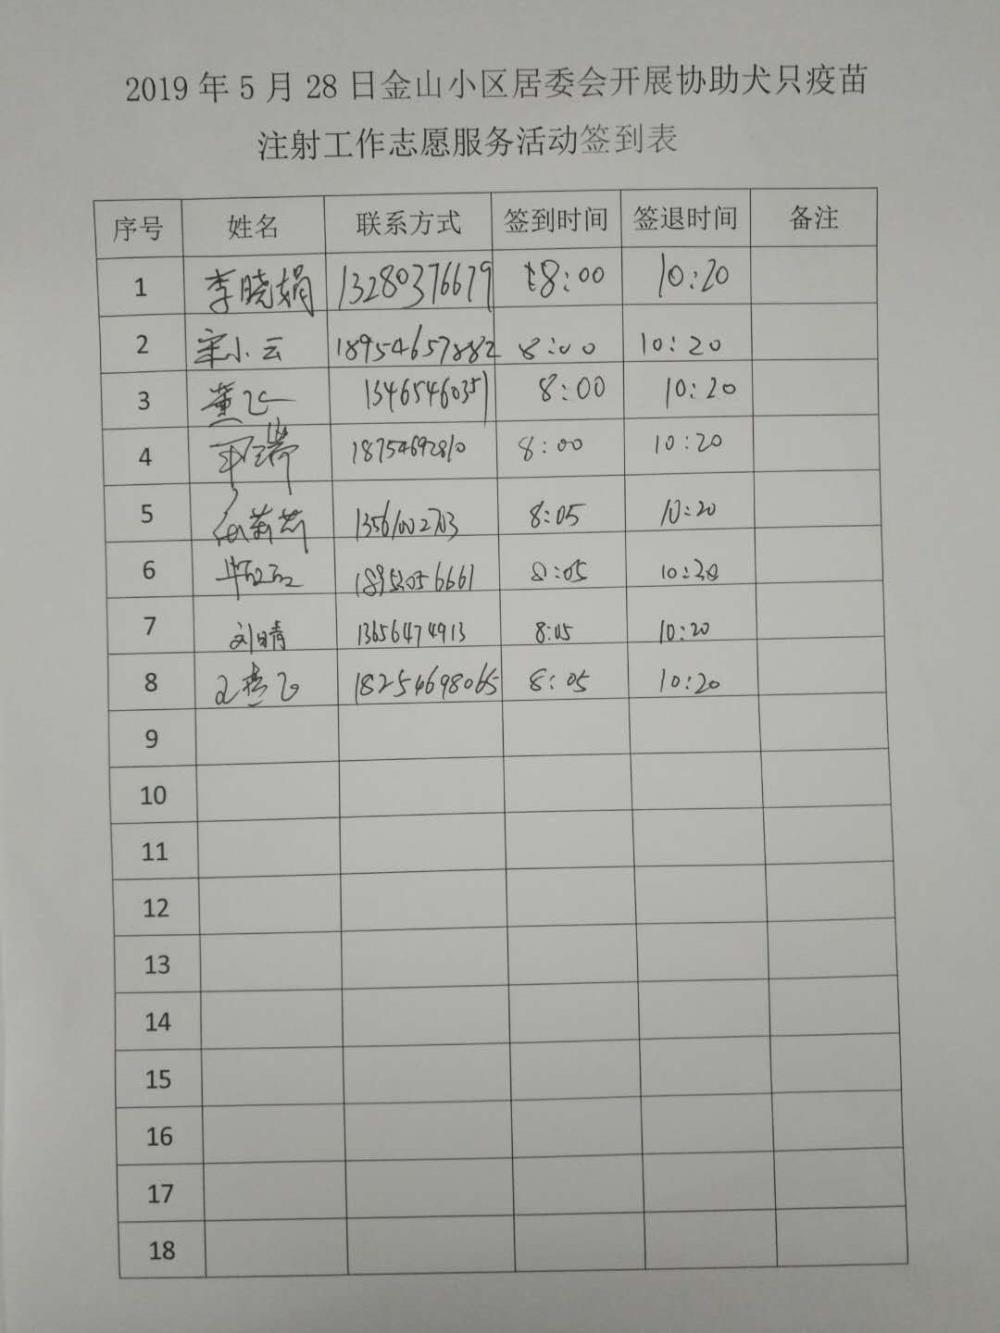 2019 年 5 月 28 日金山小区居委会开展协助犬只疫苗
注射工作志愿服务活动签到表
序号 姓名 联系方式 签到时间 签退时间 备注
1 李晓娟 13280376679 8:00 10:20
2 宋小云 18954657882 8:00 10:20
3 董飞 13465460351 8:00 10:20
4 18754692810 8:00 10:20
5 13561002703 8:05 10:20
6 8:05 10:20
7 刘晴 13656474913 8:05 10:20
8 18254698065 8:05 10:20
9
10
11
12
13
14
15
16
17
18